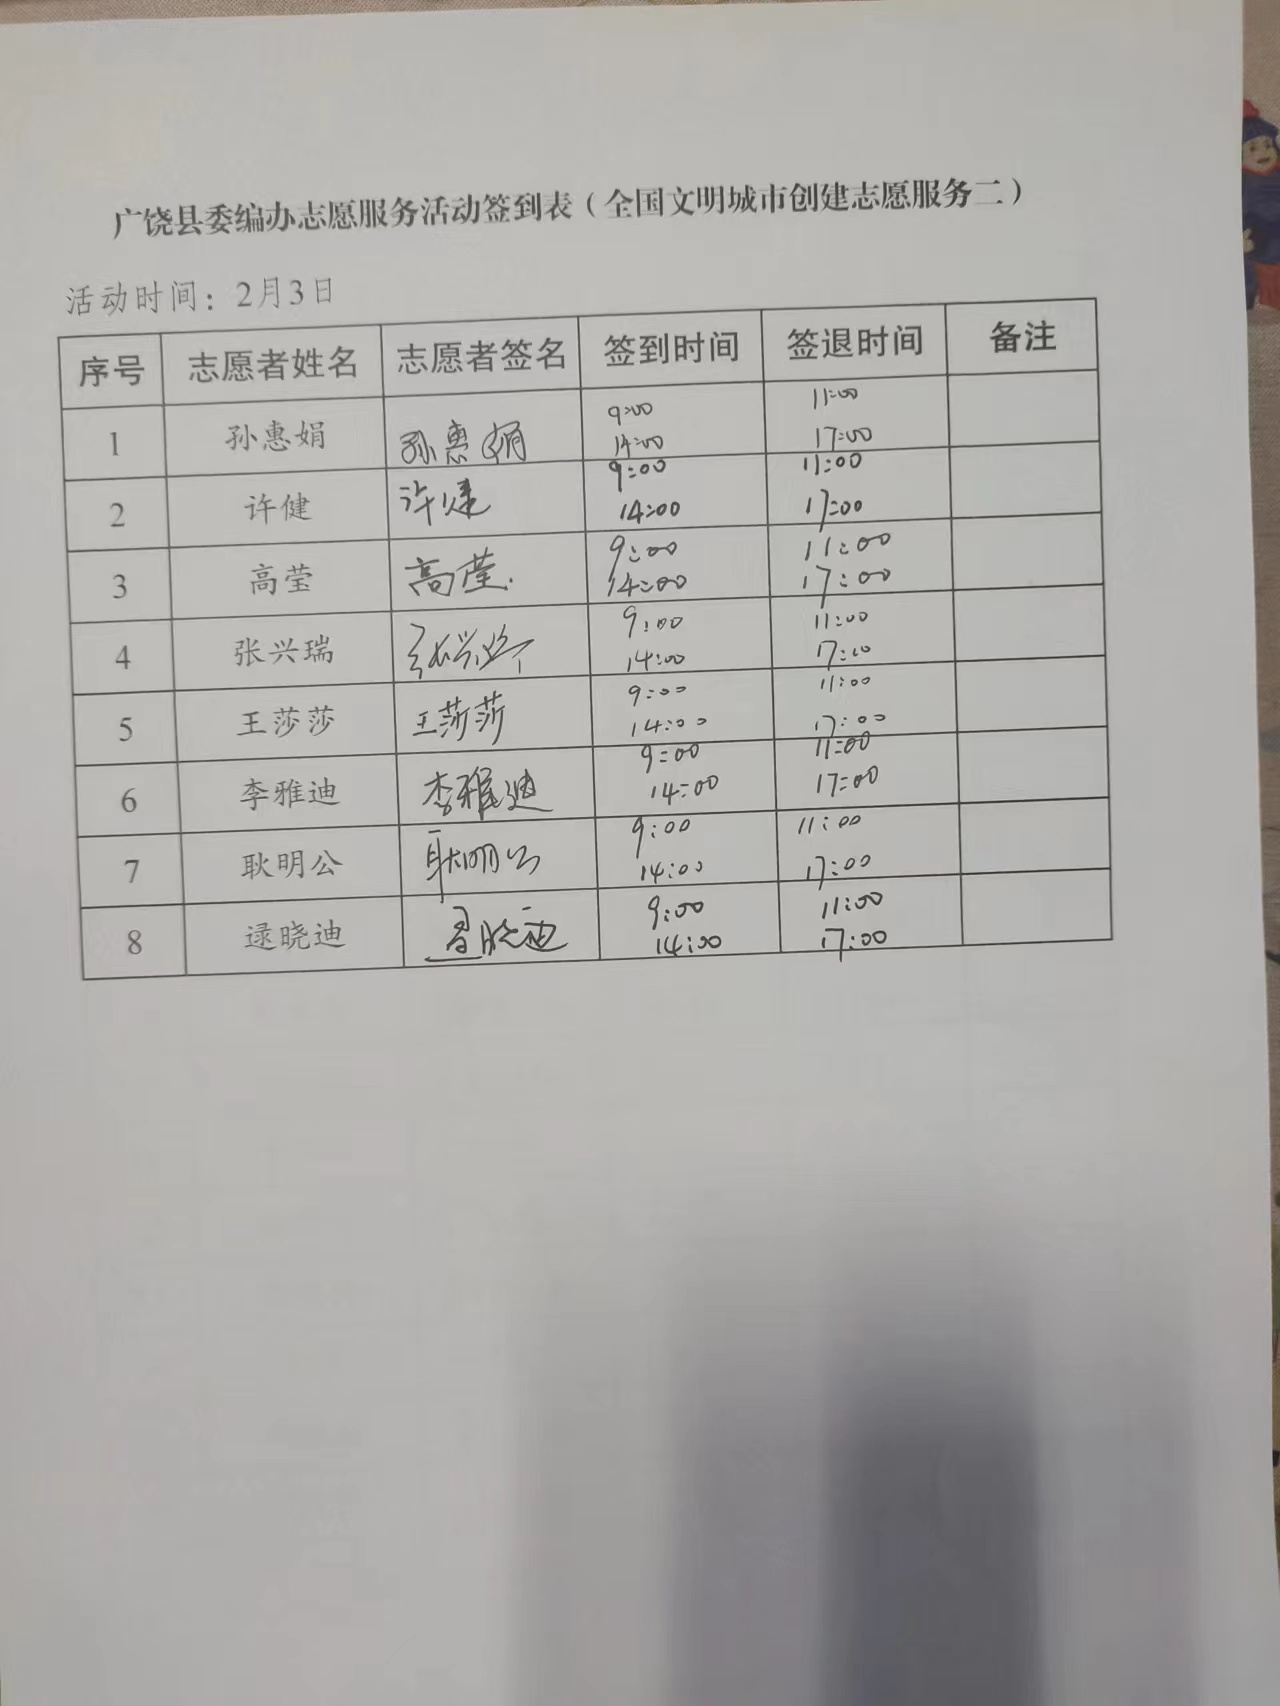 广饶县委编办志愿服务活动签到表（全国文明城市创建志愿服务二）
活动时间：2月3日
序号 志愿者姓名 志愿者签名 签到时间 签退时间 备注
1 孙惠娟 孙惠娟 9:00 11:00
14:00 17:00
2 许健 许健 9:00 11:00
14:00 17:00
3 高莹 高莹. 9:00 11:00
14:00 17:00
4 张兴瑞 张兴瑞 9:00 11:00
14:00 17:00
5 王莎莎 王莎莎 9:00 11:00
14:00 17:00
6 李雅迪 李雅迪 9:00 11:00
14:00 17:00
7 耿明公 耿明公 9:00 11:00
14:00 17:00
8 逯晓迪 逯晓迪 9:00 11:00
14:00 17:00